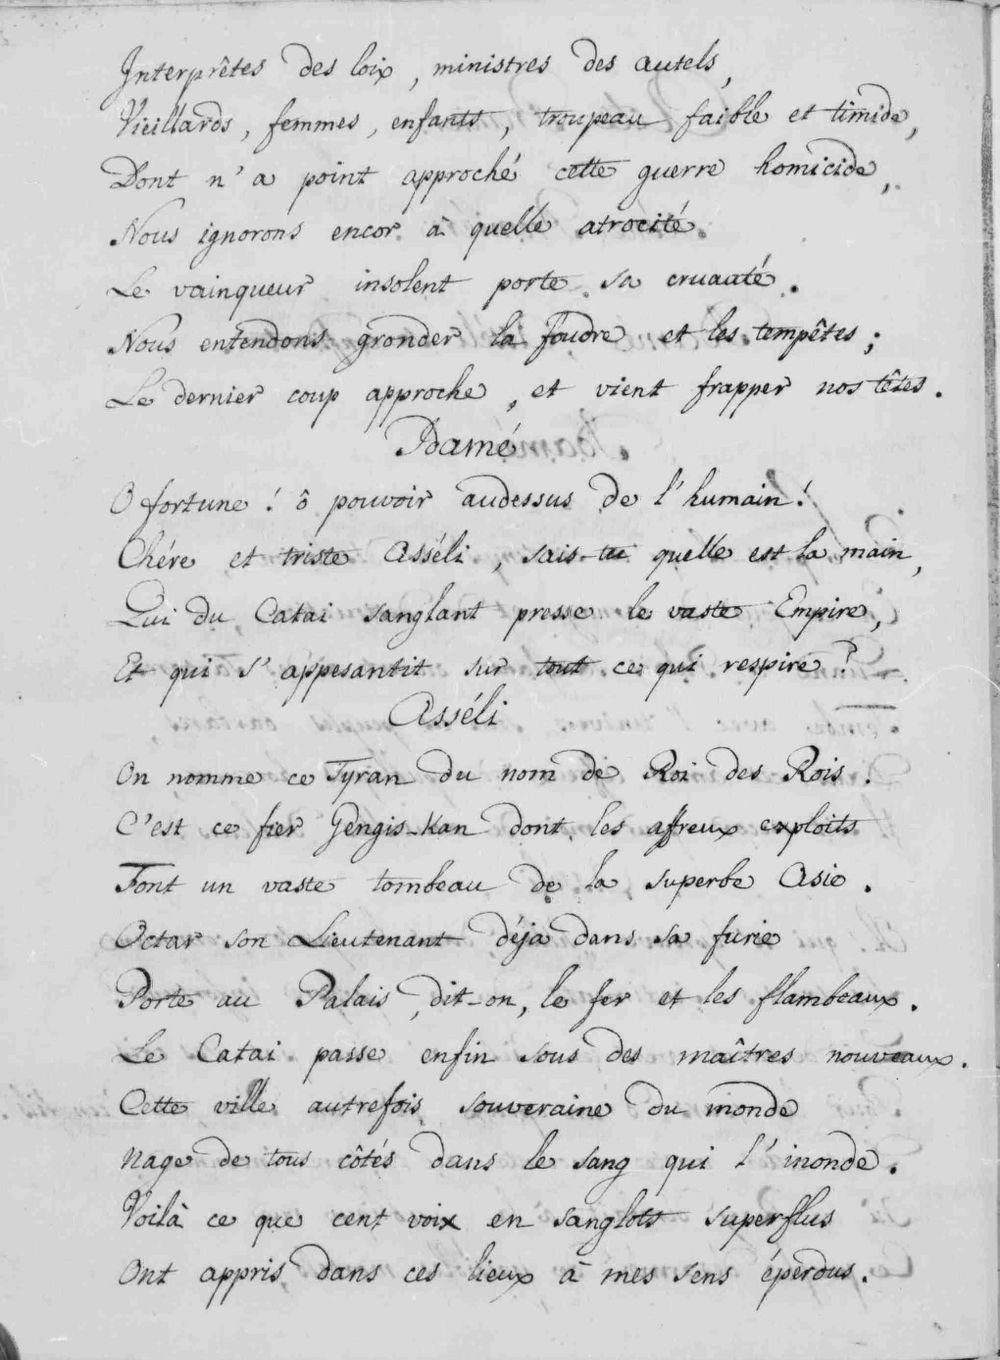 Interprêtes des loix, ministres des autels,
Vieillards, femmes, enfants, troupeau faible et timide,
Dont n'a point approché cette guerre homicide,
Nous ignorons encor à quelle atrocité
Le vainqueur insolent porte sa cruauté.
Nous entendons gronder la foudre et les tempêtes;
Le dernier coup approche, et vient frapper nos têtes.
Idamé
O fortune! ô pouvoir audessus de l'humain!
Chére et triste Asséli, sais-tu quelle est la main,
Qui du Catai sanglant presse le vaste Empire,
Et qui s'appesantit sur tout ce qui respire?
Asséli
On nomme ce Tyran du nom de Roi des Rois.
C'est ce fier Gengis-Kan dont les affreux exploits
Font un vaste tombeau de la superbe Asie.
Octar son Lieutenant déja dans sa furie
Porte au Palais, dit-on, le fer et les flambeaux.
Le Catai passe enfin sous des maîtres nouveaux.
Cette ville autrefois souveraine du monde
Nage de tous côtés dans le sang qui l'inonde.
Voilà ce que cent voix en sanglots superflus
Ont appris dans ces lieux à mes sens éperdus.